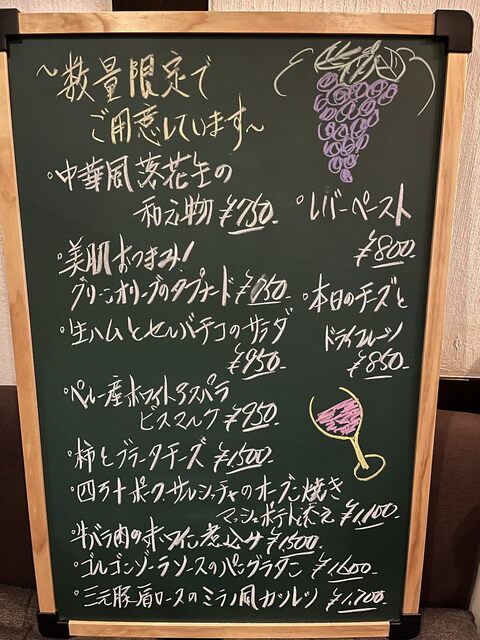 ~数量限定で
ご用意しています~
・中華風落花生の
和え物 ¥750.
・レバーペースト
¥800.
・美肌おつまみ!
グリーンオリーブのタプナード ¥750.
・本日のチーズと
ドライフルーツ
¥850.
・生ハムとセルバチコのサラダ
¥950.
・ペルー産ホワイトアスパラ
ビスマルク ¥950.
・柿とブラータチーズ ¥1,500.
・四万十ポークサルシッチャのオーブン焼き
マッシュポテト添え ¥1,100.
・牛バラ肉の赤ワイン煮込み ¥1,500.
・ゴルゴンゾーラソースのパングラタン ¥1,600.
・三元豚肩ロースのミラノ風カツレツ ¥1,700.